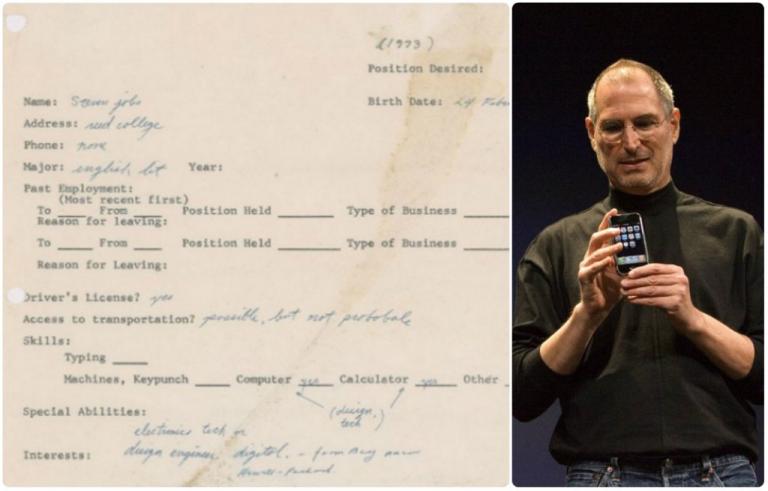 (1973)
Position Desired:
Name: Steven jobs
Birth Date: 24
Address: reed college
Phone: none
Major: english lit Year:
Past Employment:
(Most recent first)
To ____ From ____ Position Held ________ Type of Business ______
Reason for leaving:
To ____ From ____ Position Held ________ Type of Business ______
Reason for Leaving:
Driver's License? yes
Access to transportation? possible, but not probable
Skills:
Typing ____
Machines, Keypunch ____ Computer yes Calculator yes Other
(design, tech)
Special Abilities:
electronics tech or
Interests: design engineer digital. - from Bay near
Hewlett-Packard